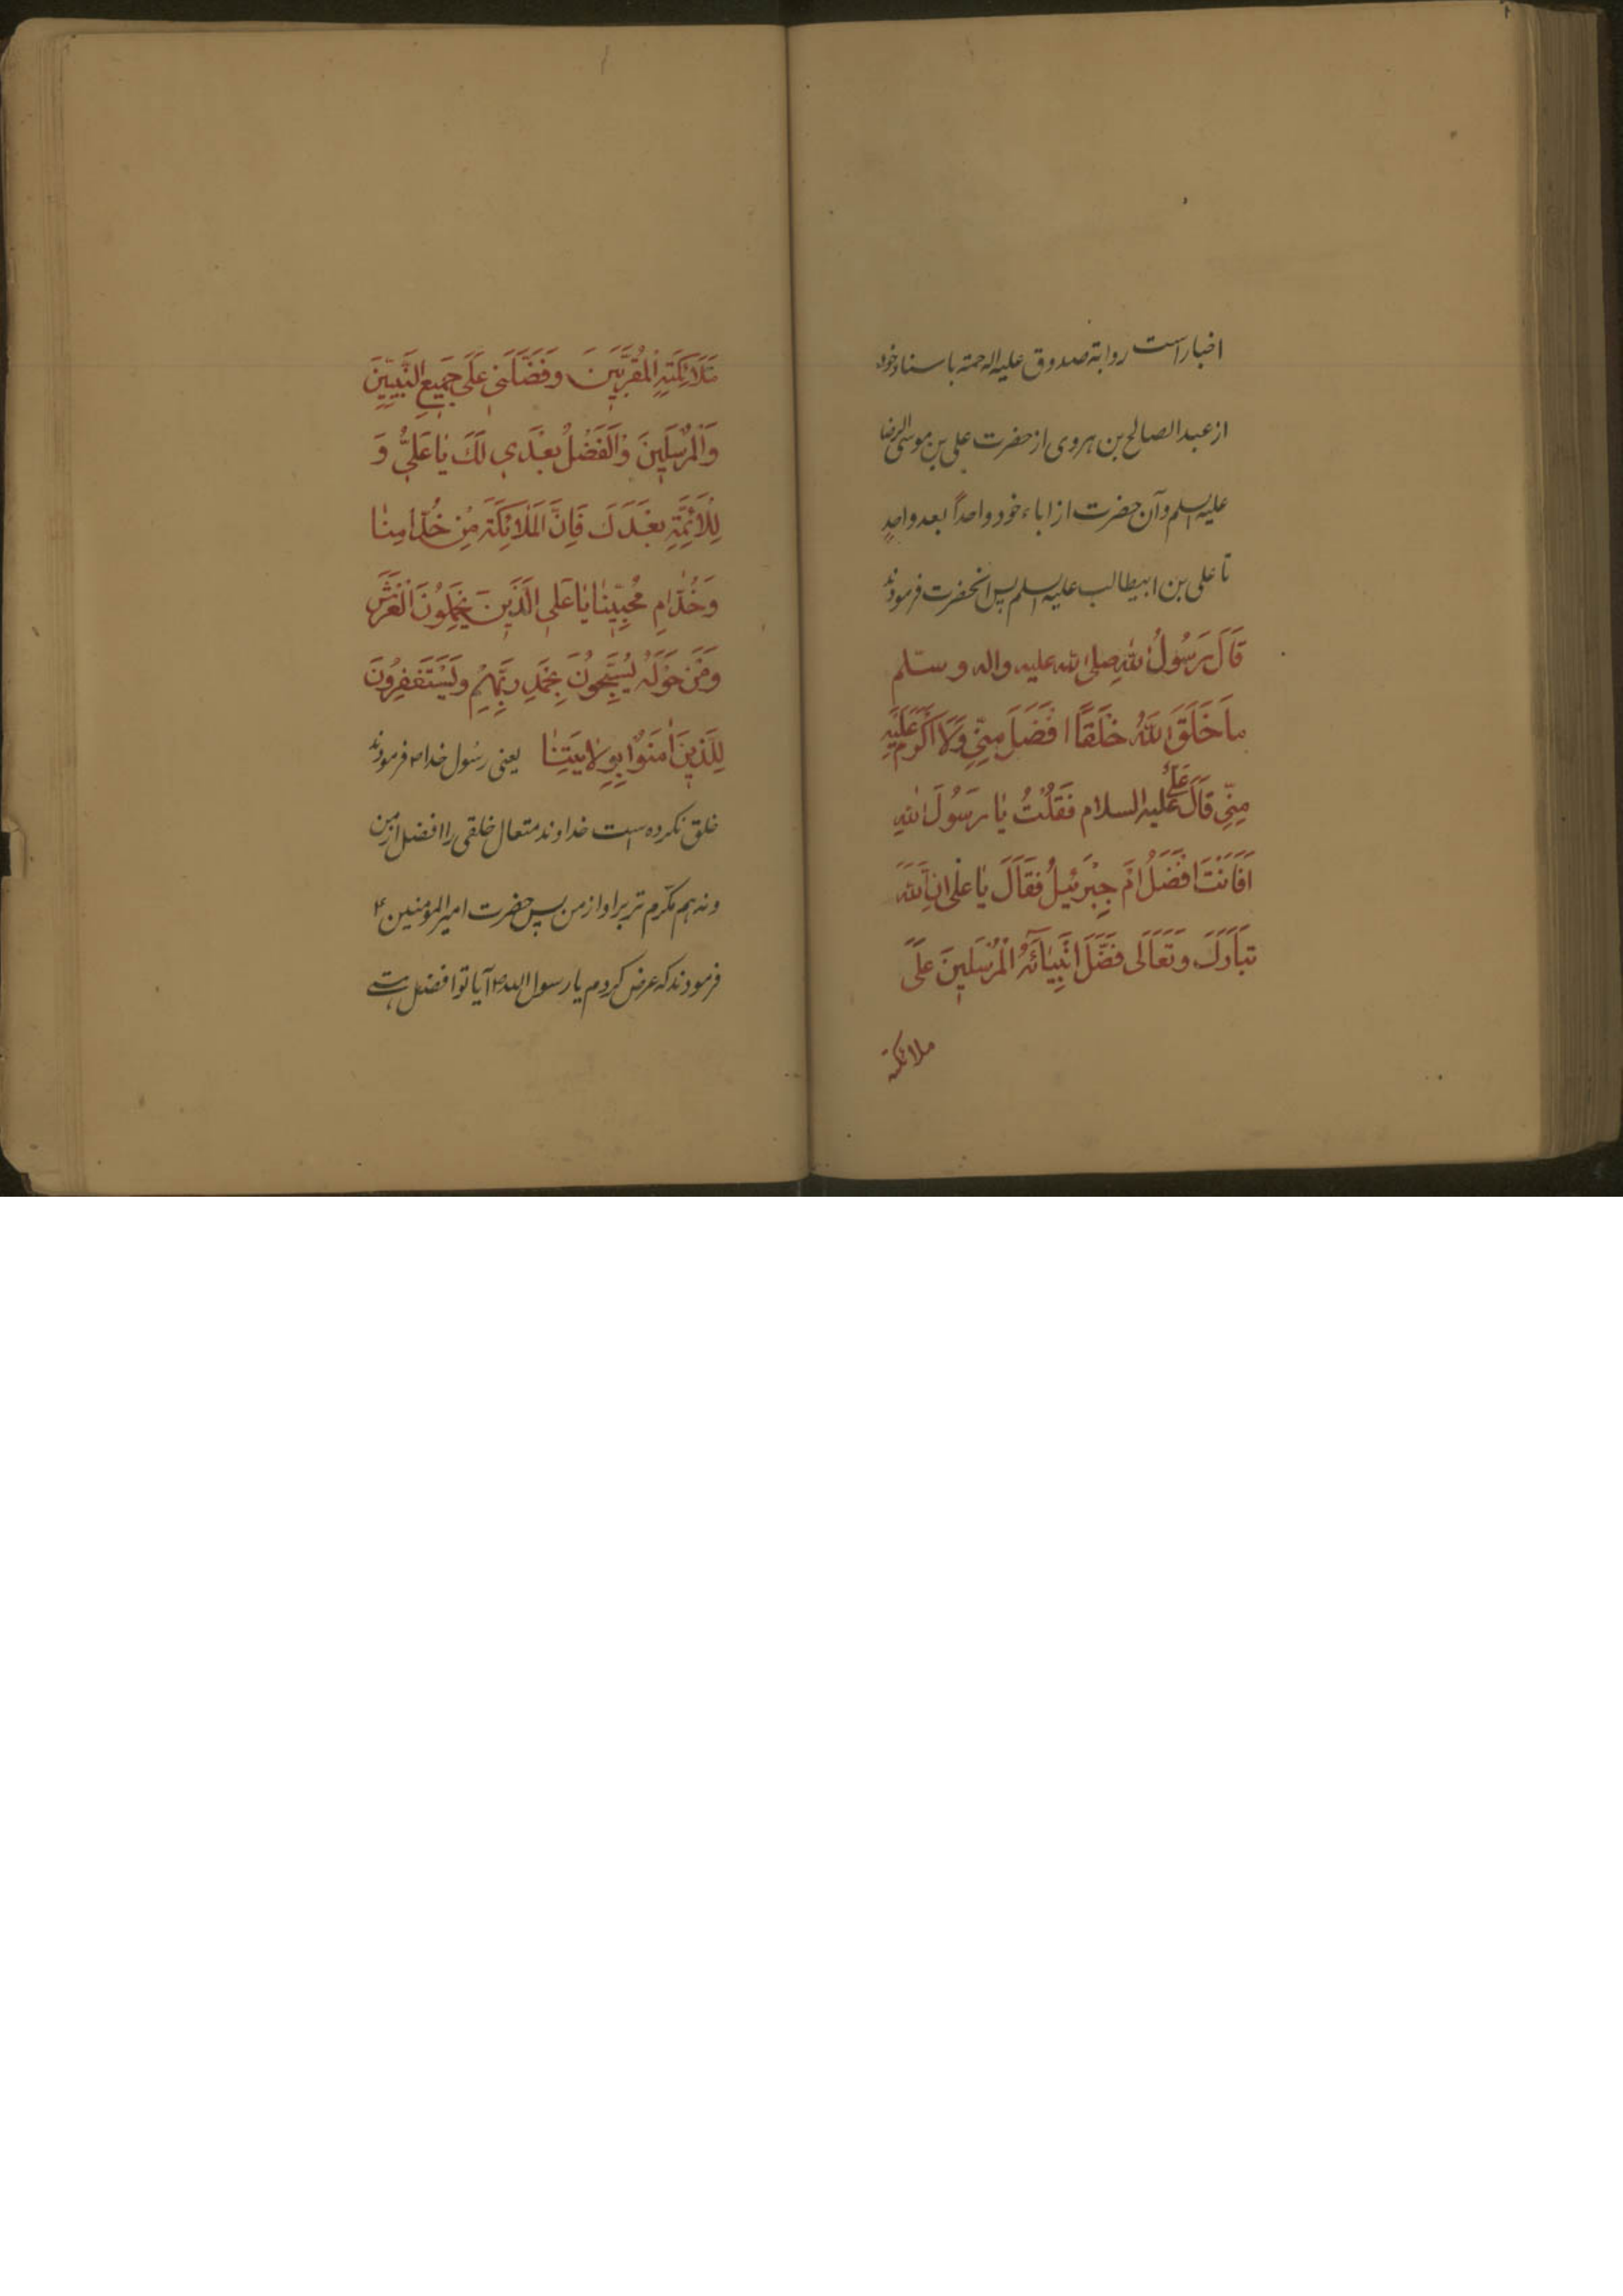 اخبار است روایة صدوق علیه الرحمة باسناد خود
از عبد الصالح بن هروی از حضرت علی بن موسی الرضا
علیه السلم و آن حضرت از اباء خود واحداً بعد واحدٍ
تا علی بن ابیطالب علیه السلم پس آنحضرت فرمودند
قَالَ رَسُولُ اللهِ صلی الله علیه واله وسلم
ما خَلَقَ اللهُ خَلَقًا افضَلَ مِنّي وَلَا اَكرَم عَلَيهِ
مِنّي قَالَ عَليّ علیه السلام فَقُلْتُ يٰا رَسُولَ اللهِ
اَفَاَنْتَ اَفضَلُ اَمْ جِبْرَئيلُ فَقَالَ يٰا عَلي اِنَّ اللهَ
تَبارَكَ وَتَعَالَى فَضَّلَ انبِيٰائَهُ الْمُرْسَلينَ عَلَى
ملائکته
مَلَائِكَتِهِ الْمُقَرَّبينَ وَفَضَّلَني عَلَى جَميعِ النَّبِيّينَ
وَالْمُرْسَلينَ وَالْفَضْلُ بَعْدي لَكَ يٰا عَليُّ وَ
لِلْاَئِمَّةِ بَعْدَكَ فَاِنَّ الْمَلَائِكَةَ مِن خُدّامِنٰا
وَخُدّامِ مُحِبّينٰا يٰا عَلي الَّذينَ يَحْمِلُونَ الْعَرْشَ
وَمَنْ حَوْلَهُ يُسَبِّحُونَ بِحَمْدِ رَبِّهِمْ وَيَسْتَغْفِرُونَ
لِلَّذينَ اٰمَنُوا بِوِلٰايَتِنٰا یعنی رسُول خدا ص فرمودند
خلق نکرده است خداوند متعال خلقی را افضل از من
و نه هم مکرّم تر بر او از من پس حضرت امیر المؤمنین ع
فرمودند که عرض کردم یا رسول الله ص آیا تو افضل هستی